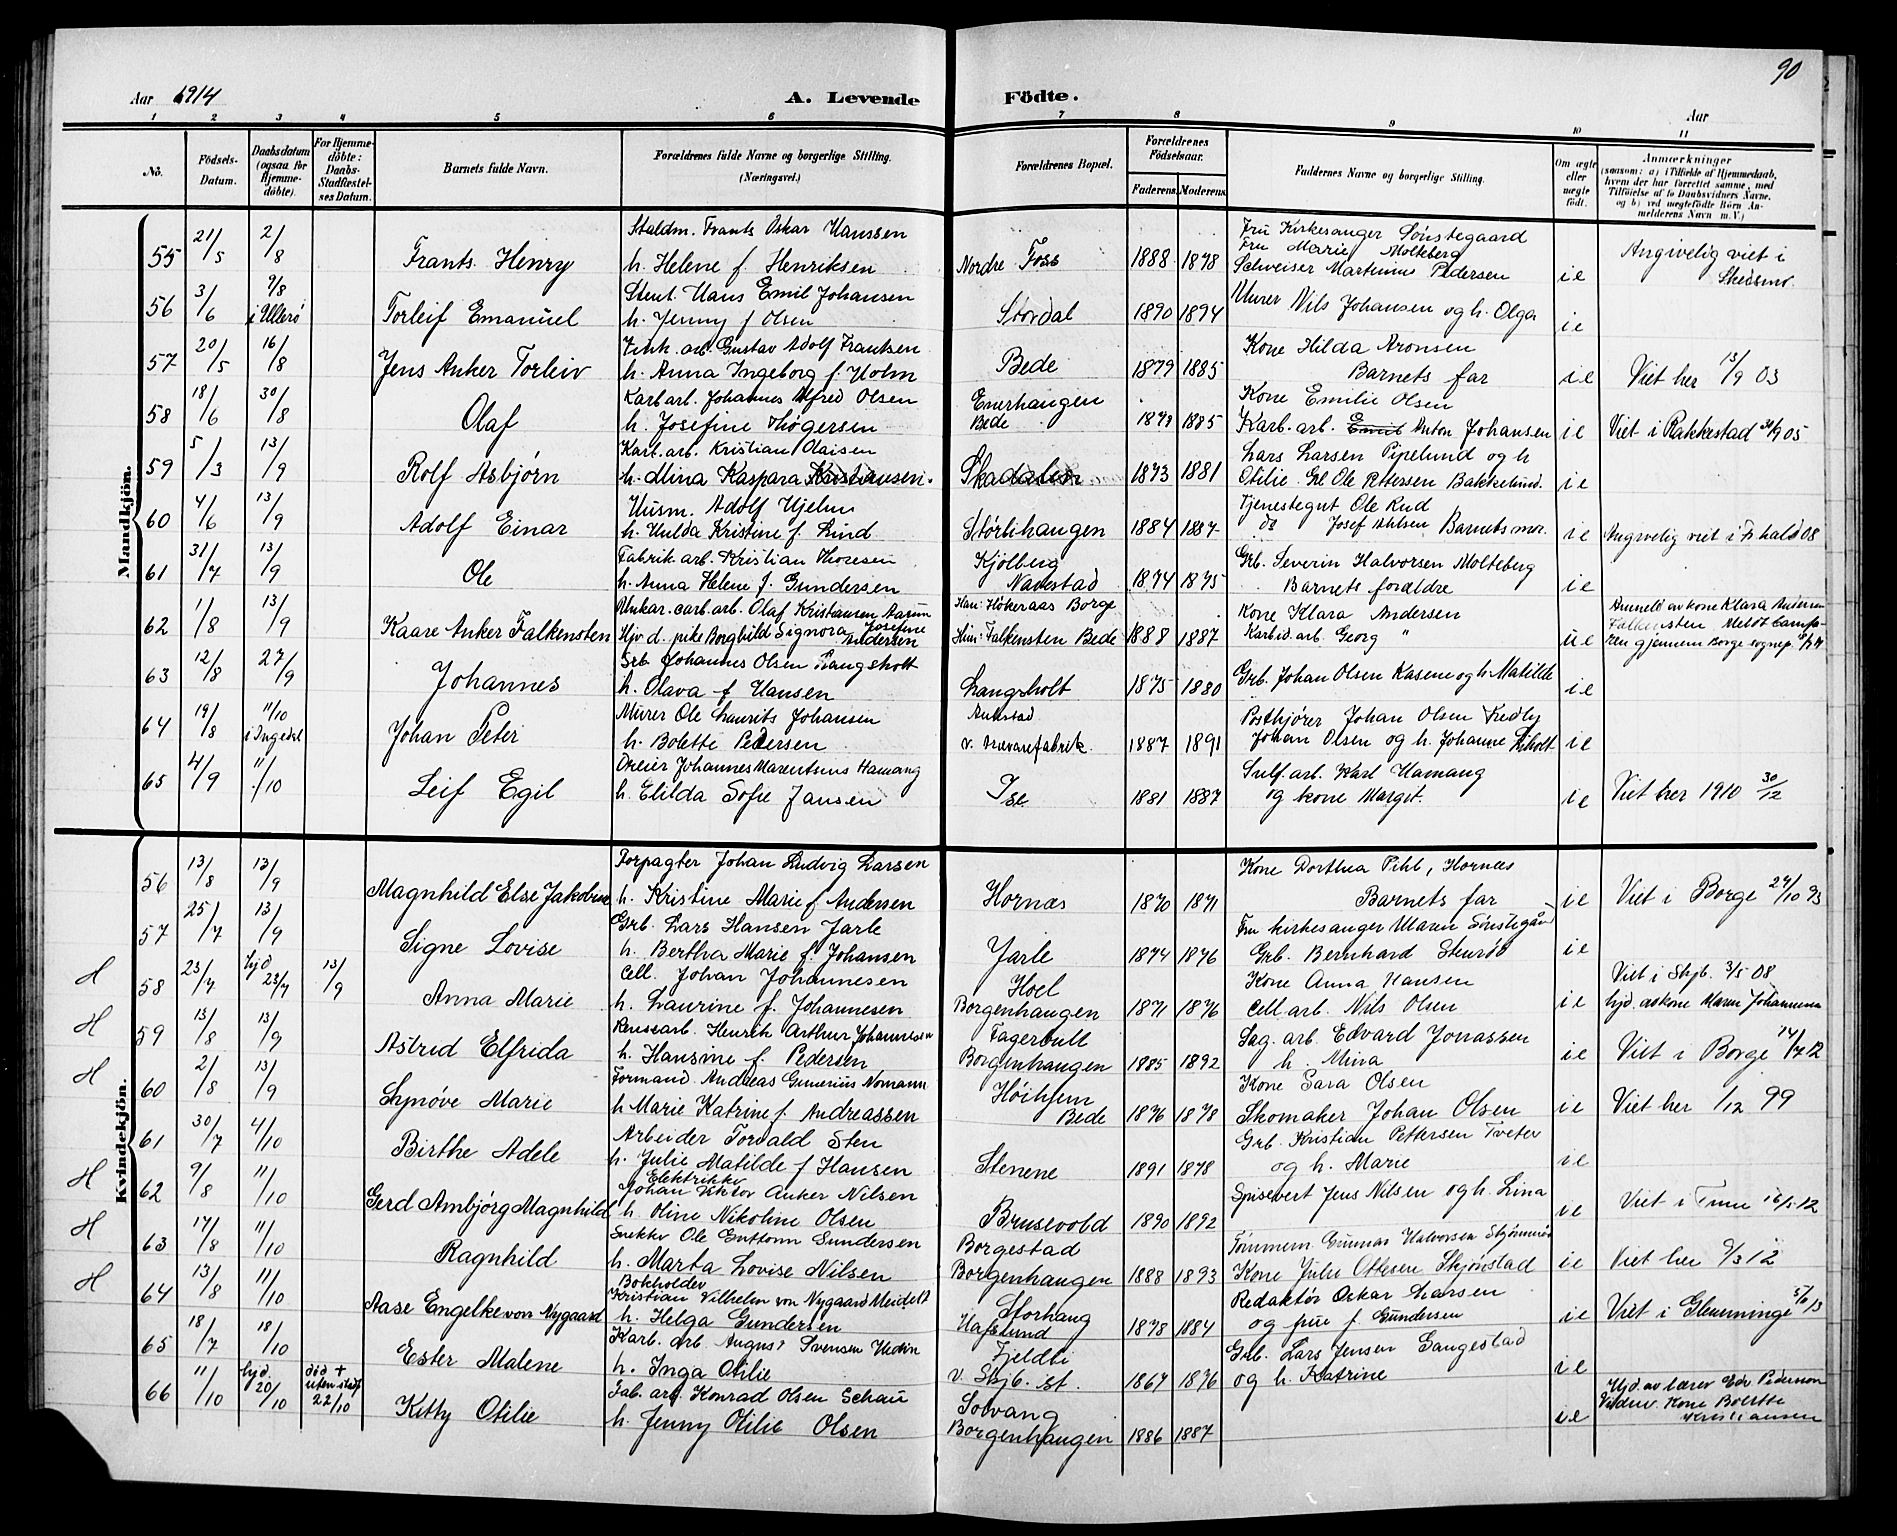 90
Aar 1914
A. Levende Födte.
Aar
1 2 3 4 5 6 7 8 9 10 11
No.
Födsels-Datum.
Daabsdatum (ogsaa for Hjemme-döbte).
For Hjemme-döbte: Daabs-Stadfæstelses Datum.
Barnets fulde Navn.
Forældrenes fulde Navne og borgerlige Stilling. (Næringsvei.)
Forældrenes Bopæl.
Forældrenes Födselsaar.
Faderens. Moderens.
Faddernes Navne og borgerlige Stilling.
Om ægte eller uægte födt.
Anmærkninger (saasom: a) i Tilfælde af Hjemmedaab, hvem der har forrettet samme, med Tilföielse af to Daabsvidners Navne, og b) ved uægtefödte Börn Anmelderens Navn m. V.)
Mandkjön.
55 21/5 2/8 Frants Henry
Staldm. Frants Oskar Hanssen
h. Helene f. Henriksen
Nordre Foss 1888 1878
Fru Kirkesanger Sönstegaard
Fru Marie Molteberg
Schweiser Martinius Pedersen
ie Angivelig viet i Skedsmo.
56 3/6 9/8 i Ullerø Torleif Emanuel
Stent. Hans Emil Johansen
h. Jenny f Olsen
Stordal 1890 1894
Murer Nils Johansen og h. Olga
ie
57 20/5 16/8 Jens Anker Torleiv
Zink. arb. Gustav Adolf Frantsen
h. Anna Ingeborg f. Holm
Bede 1879 1885
Kone Hilda Aronsen
Barnets far
ie Viet her 13/9 03
58 18/6 30/8 Olaf
Karb arb. Johannes Alfred Olsen
h. Josefine Thøgersen
Enerhaugen
Bede 1879 1885
Kone Emilie Olsen
Karb. arb. Anton Johansen
ie Viet i Rakkestad 05
59 5/3 13/9 Rolf Asbjørn
Karb. arb. Kristian Olaisen
h. Mina Kaspara Kristiansen.
Skadalen 1873 1881
Lars Larsen Pipelund og h
Otilie Gl Ole Pettersen Bakkelund.
ie
60 4/6 13/9 Adolf Einar
Husm. Adolf Hjelm
h. Hulda Kristine f. Lund
Störlihaugen 1884 1887
Tjenestegut Ole Rud
do Josef Barnets mor.
ie Angivelig viet i Fr.hald 08
61 31/7 13/9 Ole
Fabrik. arb. Kristian Thoresen
h. Anna Helene f. Gundersen
Kjölberg
Navestad 1874 1875
Grb. Severin Halvorsen Molteberg
Barnets forældre
ie
62 1/8 13/9 Kaare Anker Falkensten
Unkar. carb. arb. Olaf Kristiansen Aarum
Hjv d. pike Borghild Signora Josefine Andersen
Han: Høkeraas Borge
Hun: Falkensten Bede 1888 1887
Kone Klara Andersen
Karbid. arb. Georg "
ue Anmeldt av kone Klara Andersen
Falkensten
gjennem Borge sognep.
63 12/8 27/9 Johannes
Grb Johannes Olsen Langsholt
h. Olava f Hansen
Langsholt 1875 1880
Grb. Johan Olsen Kasene og h. Matilde
ie
64 19/8 11/10 i Ingedal Johan Peter
Murer Ole Laurits Johansen
h. Bolette Pedersen
v. trævarefabrik 1887 1891
Postkjører Johan Olsen Kedly
Johan Olsen og h. Johanne Liholt
ie
65 4/9 11/10 Leif Egil
Dreier Johannes Marentsius Hamang
h. Elilda Sofie Jansen
Ise 1881 1887
Sulf. arb. Karl Hamang
og kone Margit.
ie Viet her 1910 30/12
Kvindekjön.
56 13/8 13/9 Magnhild Else Jakobine
Forpagter Johan Ludvig Larsen
h. Kristine Marie f Andersen
Hornæs 1870 1871
Kone Dorthea Pihl, Hornæs
Barnets far
ie Viet i Borge 27/10 93
57 25/7 13/9 Signe Lovise
Grb. Lars Hansen Jarle
h. Bertha Marie f. Johansen
Jarle 1874 1876
Fru kirkesanger Maren Sönstegård
Grb. Bernhard Stenrød
ie
H 58 23/7 hjd 23/7 13/9 Anna Marie
Cell. Johan Johannesen
h. Laurine f. Johannesen
Hoel
Borgenhaugen 1871 1876
Kone Anna Hansen
Cell arb. Nils Olsen
ie Viet i Skjb. 3/5 08
hjd. av kone Maren Johannesen
H 59 13/8 13/9 Astrid Elfrida
Henrik Arthur Johannesen
h. Hansine f. Pedersen
Fagerbull
Borgenhaugen 1885 1892
Sag. arb. Edvard Jonassen
h. Mina
ie Viet i Borge 14/7 12
H 60 2/8 13/9 Synøve Marie
Formand Andreas Gunerius Nomann
h Marie Katrine f. Andreassen
Høihjem
Bede 1876 1878
Kone Sara Olsen
Skomaker Johan Olsen
ie Viet her 1/12 99
61 30/7 4/10 Birthe Adele
Arbeider Torvald Sten
h. Julie Matilde f Hansen
Stenene 1891 1878
Grb. Kristian Pettersen Tveter
og h. Marie
ie
H 62 9/8 11/10 Gerd Ambjørg Magnhild
Elektriker
Johan Viktor Anker Nilsen
h. Oline Nikoline Olsen
Brusevold 1890 1892
Spisevert Jens Nilsen og h. Lina
ie Viet i Tune 16/5 12
H 63 17/8 11/10 Ragnhild
Snekker Ole Guttorm Gundersen
h. Marta Lovise Nilsen
Borgestad
Borgenhaugen 1888 1893
Tömmerm. Gunnar Halvorsen
Kone Julie Ottesen Skjønstad
ie Viet her 9/3 12
H 64 13/8 11/10 Aase Engelke von Nygaard
Bokholder
Kristian Vilhelm von Nygaard Meidelt
h. Helga Gundersen
Storhaug
Hafslund 1878 1884
Redaktør Oskar Larsen
og frue f. Gundersen
ie Viet i Glemminge 5/6 13
65 18/7 18/10 Ester Malene
Karb. arb August Svensen Hedin
h. Inga Otilie
Fjeldli
v. Skjb. st. 1867 1876
Grb. Lars Jensen Gaugestad
og h. Katrine
ie
66 11/10 hjd. 20/10 död + uten stadf 22/10 Kitty Otilie
Fab. arb. Konrad Olsen Schau
h. Jenny Otilie Olsen
Solvang
Borgenhaugen 1886 1887
ie Hjd. av lærer Edv Pedersen
Vidner Kone Bolette
Kristiansen